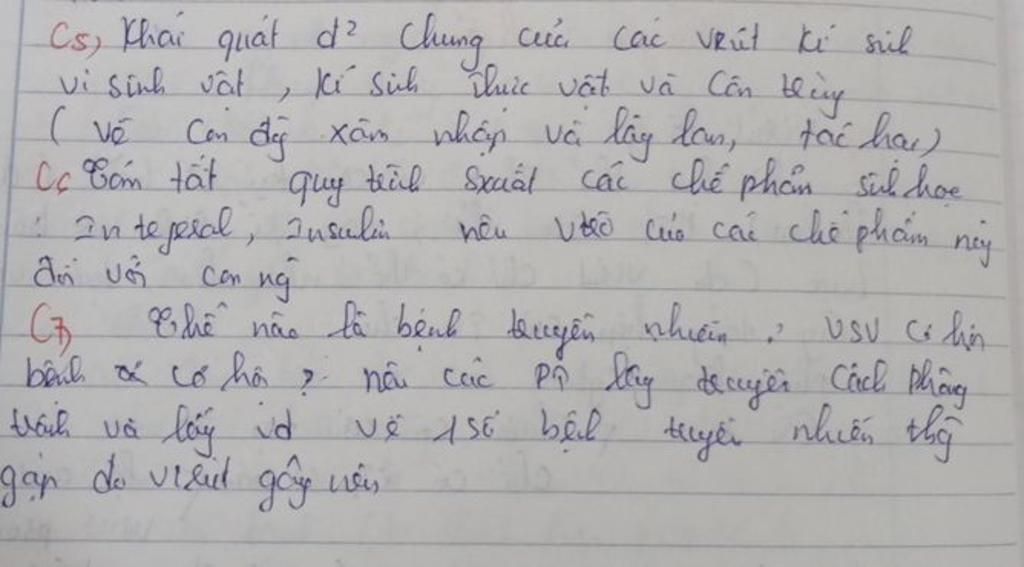 C5, Khái quát đ² chung của các virút kí sinh
vi sinh vật, kí sinh thực vật và Côn trùng
(về con đg xâm nhập và lây lan, tác hại)
C6 Tóm tắt quy trình sxuất các chế phẩm sinh học
: Inteferal, Insulin nêu vtrò của các chế phẩm này
đối với con ng
C7, Thế nào là bệnh truyền nhiễm? VSV cơ hội
bệnh cơ hội? nêu các pp lây truyền cách phòng
tránh và lấy vd về 1 số bệnh truyền nhiễm thg
gặp do virút gây nên